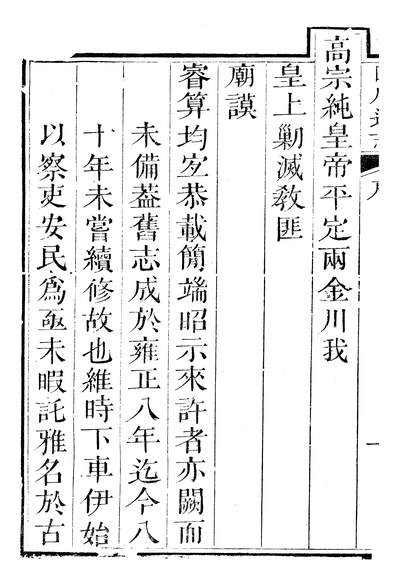 高宗純皇帝平定兩金川我
皇上勦滅敎匪
廟謨
睿算均宐恭載簡端昭示來許者亦闕而
未備葢舊志成於雍正八年迄今八
十年未嘗續修故也維時下車伊始
以察吏安民爲亟未暇託雅名於古